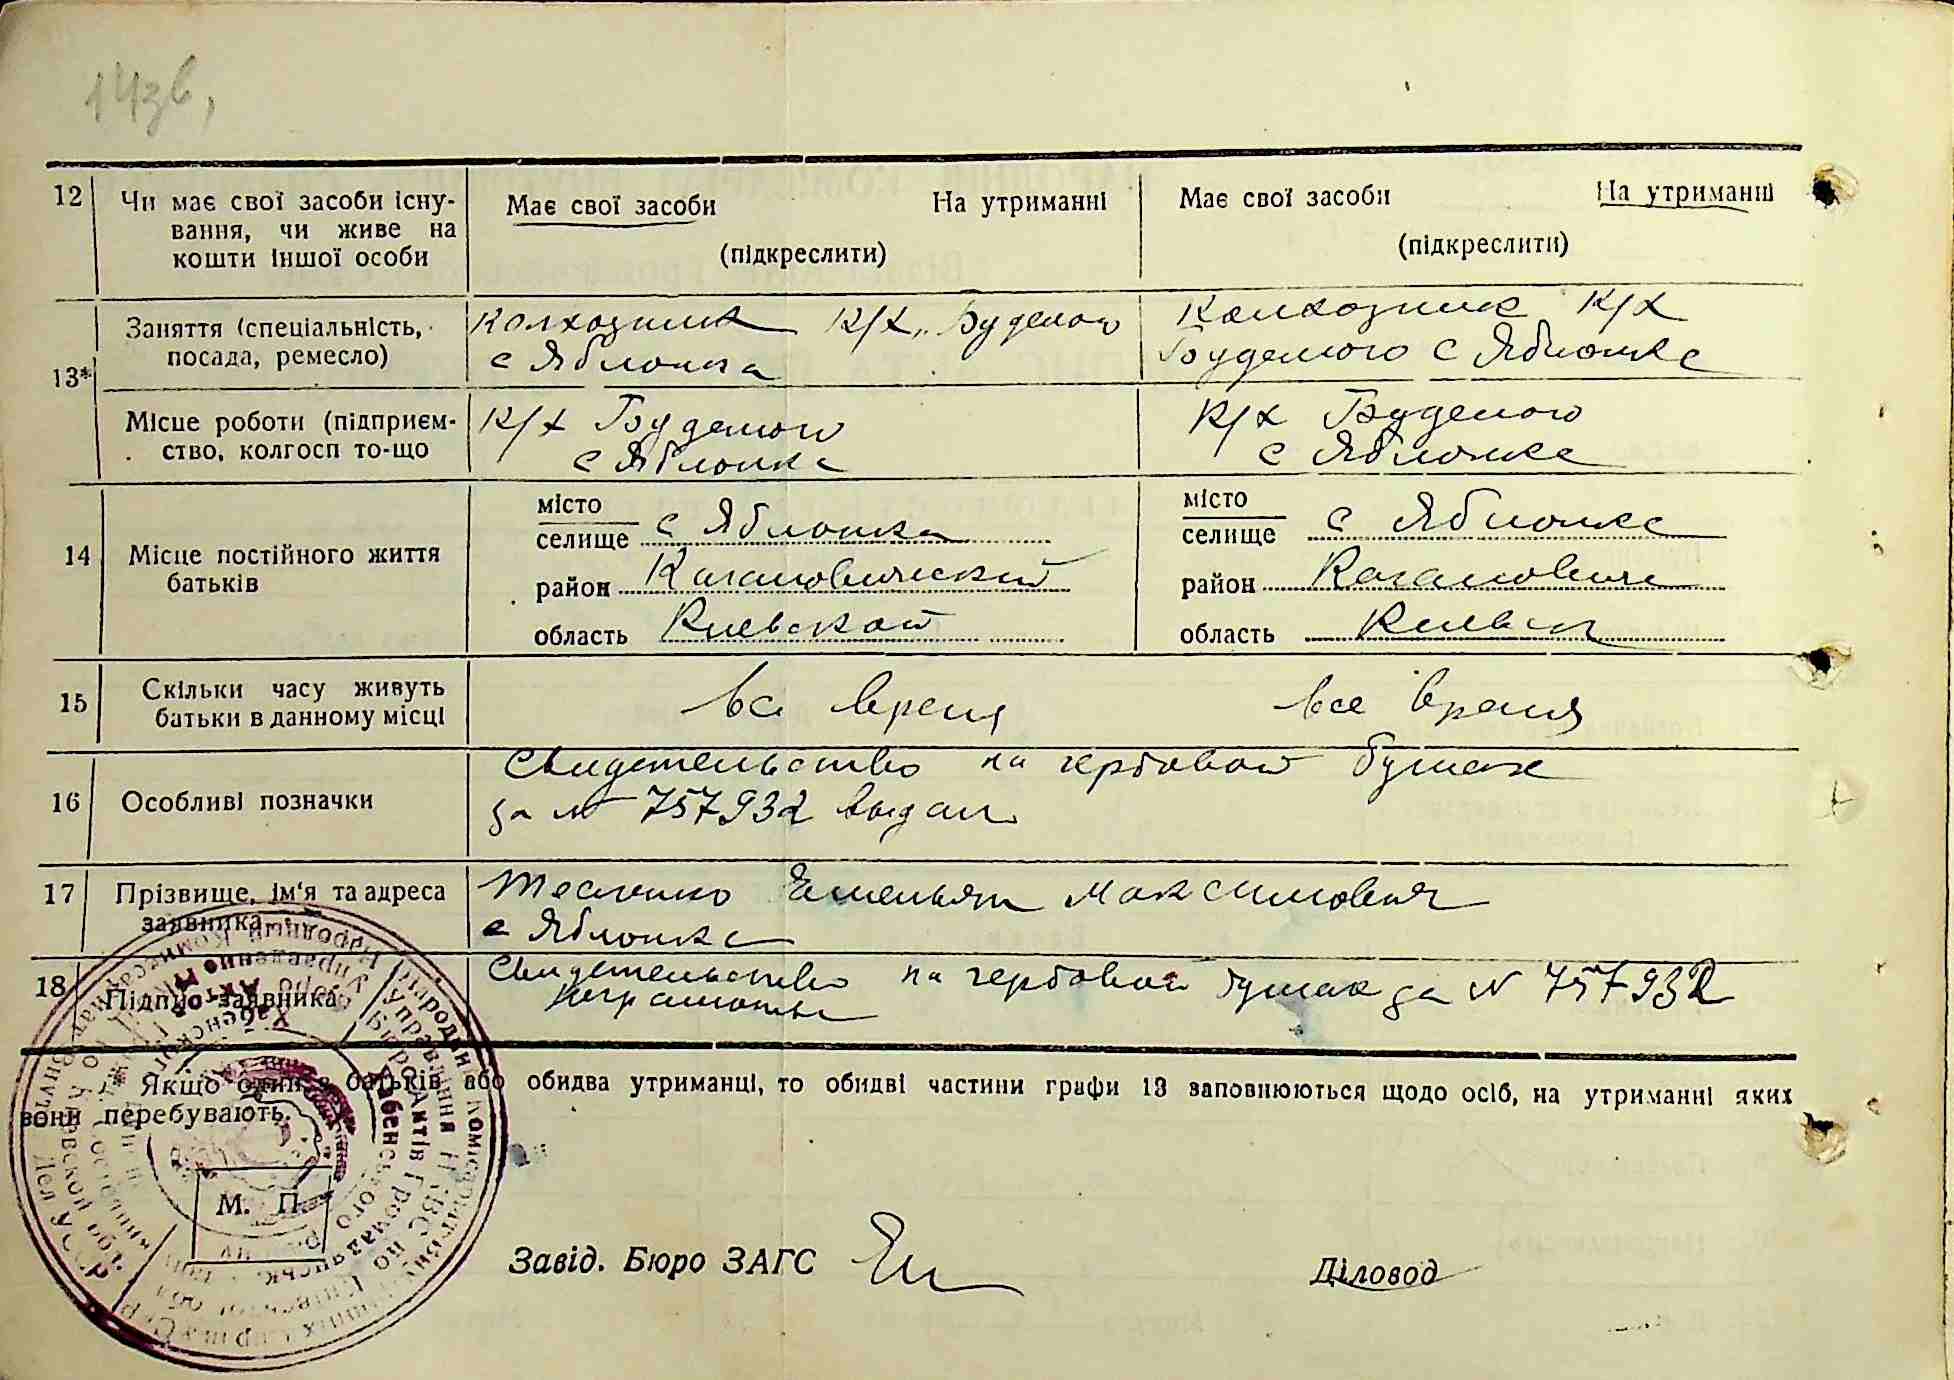 14зв,
12 Чи має свої засоби існу-
вання, чи живе на
кошти іншої особи
Має свої засоби На утриманні
(підкреслити)
Має свої засоби На утриманні
(підкреслити)
13*
Заняття (спеціальність,
посада, ремесло)
Колхозник К/х „Буденого
с Яблонка
Колхозник К/х
Буденого с Яблонка
Місце роботи (підприєм-
ство, колгосп то-що
К/х Буденого
с Яблонка
К/х Буденого
с Яблонка
14 Місце постійного життя
батьків
місто
селище с Яблонка
район Кагановический
область Киевской
місто
селище с Яблонка
район Каганович
область Киевск
15 Скільки часу живуть
батьки в данному місці
все время
все время
16 Особливі позначки
Свидетельство на гербовой бумаге
за № 757932 выдан
17 Прізвище, ім'я та адреса
заявника
Емельян Максимович
с Яблонка
18 Підпис заявника
Свидетельство на гербовой бумаге за N 757932
неграмотны
Якщо один з батьків або обидва утриманці, то обидві частини графи 13 заповнюються щодо осіб, на утриманні яких
вони перебувають.
М. П.
Завід. Бюро ЗАГС
Діловод